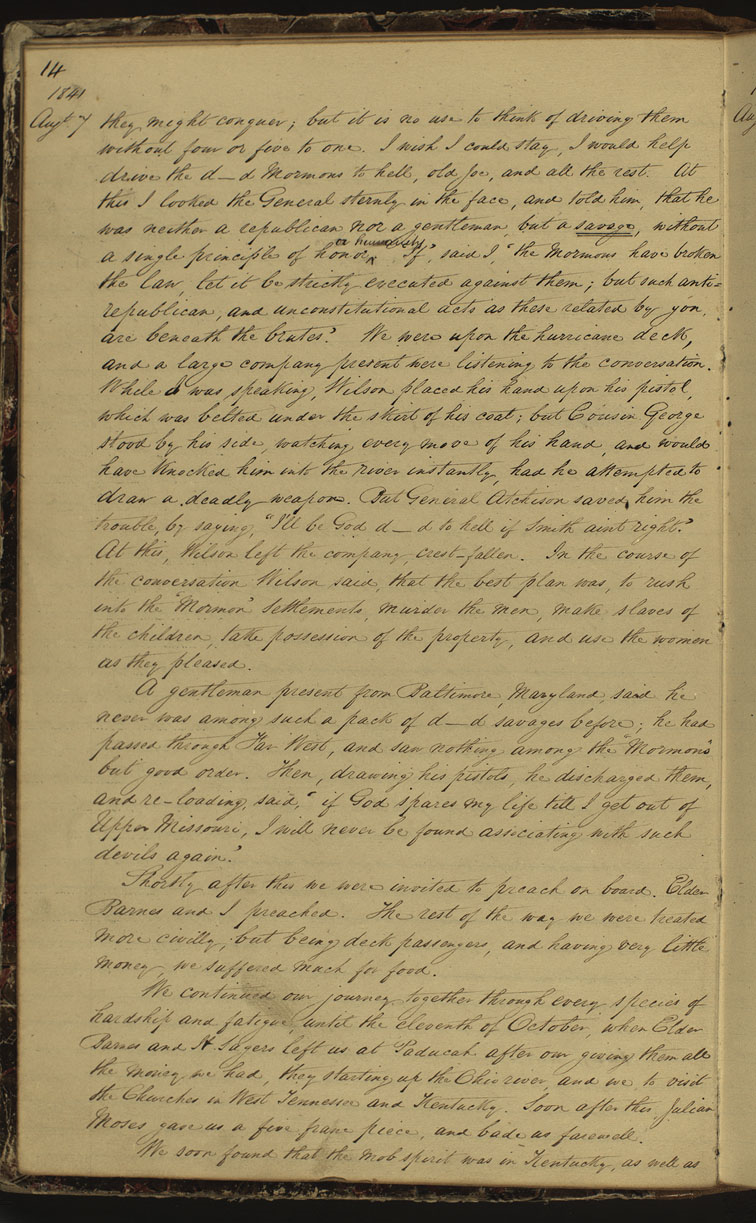 14
1841
Augt. 7
they might conquer; but it is no use to think of driving them
without four or five to one. I wish I could stay, I would help
drive the d—d Mormons to hell, old Joe, and all the rest. At
this I looked the General sternly in the face, and told him, that he
was neither a republican nor a gentleman, but a savage, without
or humanity
a single principle of honor ‸. "If", said I, "the Mormons have broken
the law, let it be strictly executed against them; but such anti=
republican, and unconstitutional acts as these related by you,
are beneath the brutes". We were upon the hurricane deck,
and a large company present were listening to the conversation.
While I was speaking, Wilson placed his hand upon his pistol,
which was belted under the skirt of his coat; but Cousin George
stood by his side, watching every move of his hand, and would
have knocked him into the river instantly, had he attempted to
draw a deadly weapon. But General Atchison saved him the
trouble, by saying, "I'll be God d—d to hell if Smith aint right".
At this, Wilson left the company, crest-fallen. In the course of
the conversation Wilson said, that the best plan was, to rush
into the "Mormon" settlements, murder the men, make slaves of
the children, take possession of the property, and use the women
as they pleased.
A gentleman present from Baltimore, Maryland, said he
never was among such a pack of d—d savages before; he had
passed through Far West, and saw nothing among the "Mormons"
but good order. Then, drawing his pistols, he discharged them,
and re-loading, said, "if God spares my life till I get out of
Upper Missouri, I will never be found associating with such
devils again".
Shortly after this we were invited to preach on board. Elder
Barnes and I preached. The rest of the way we were treated
more civilly; but being deck passengers, and having very little
money, we suffered much for food.
We continued our journey together through every species of
hardship and fatigue, until the eleventh of October, when Elder
Barnes and H Sagers left us at Paducah after our giving them all
the money we had, they starting up the Ohio river, and we to visit
the Churches in West Tennessee and Kentucky. Soon after this, Julian
Moses gave us a five franc piece, and bade us farewell.
We soon found that the mob spirit was in Kentucky, as well as